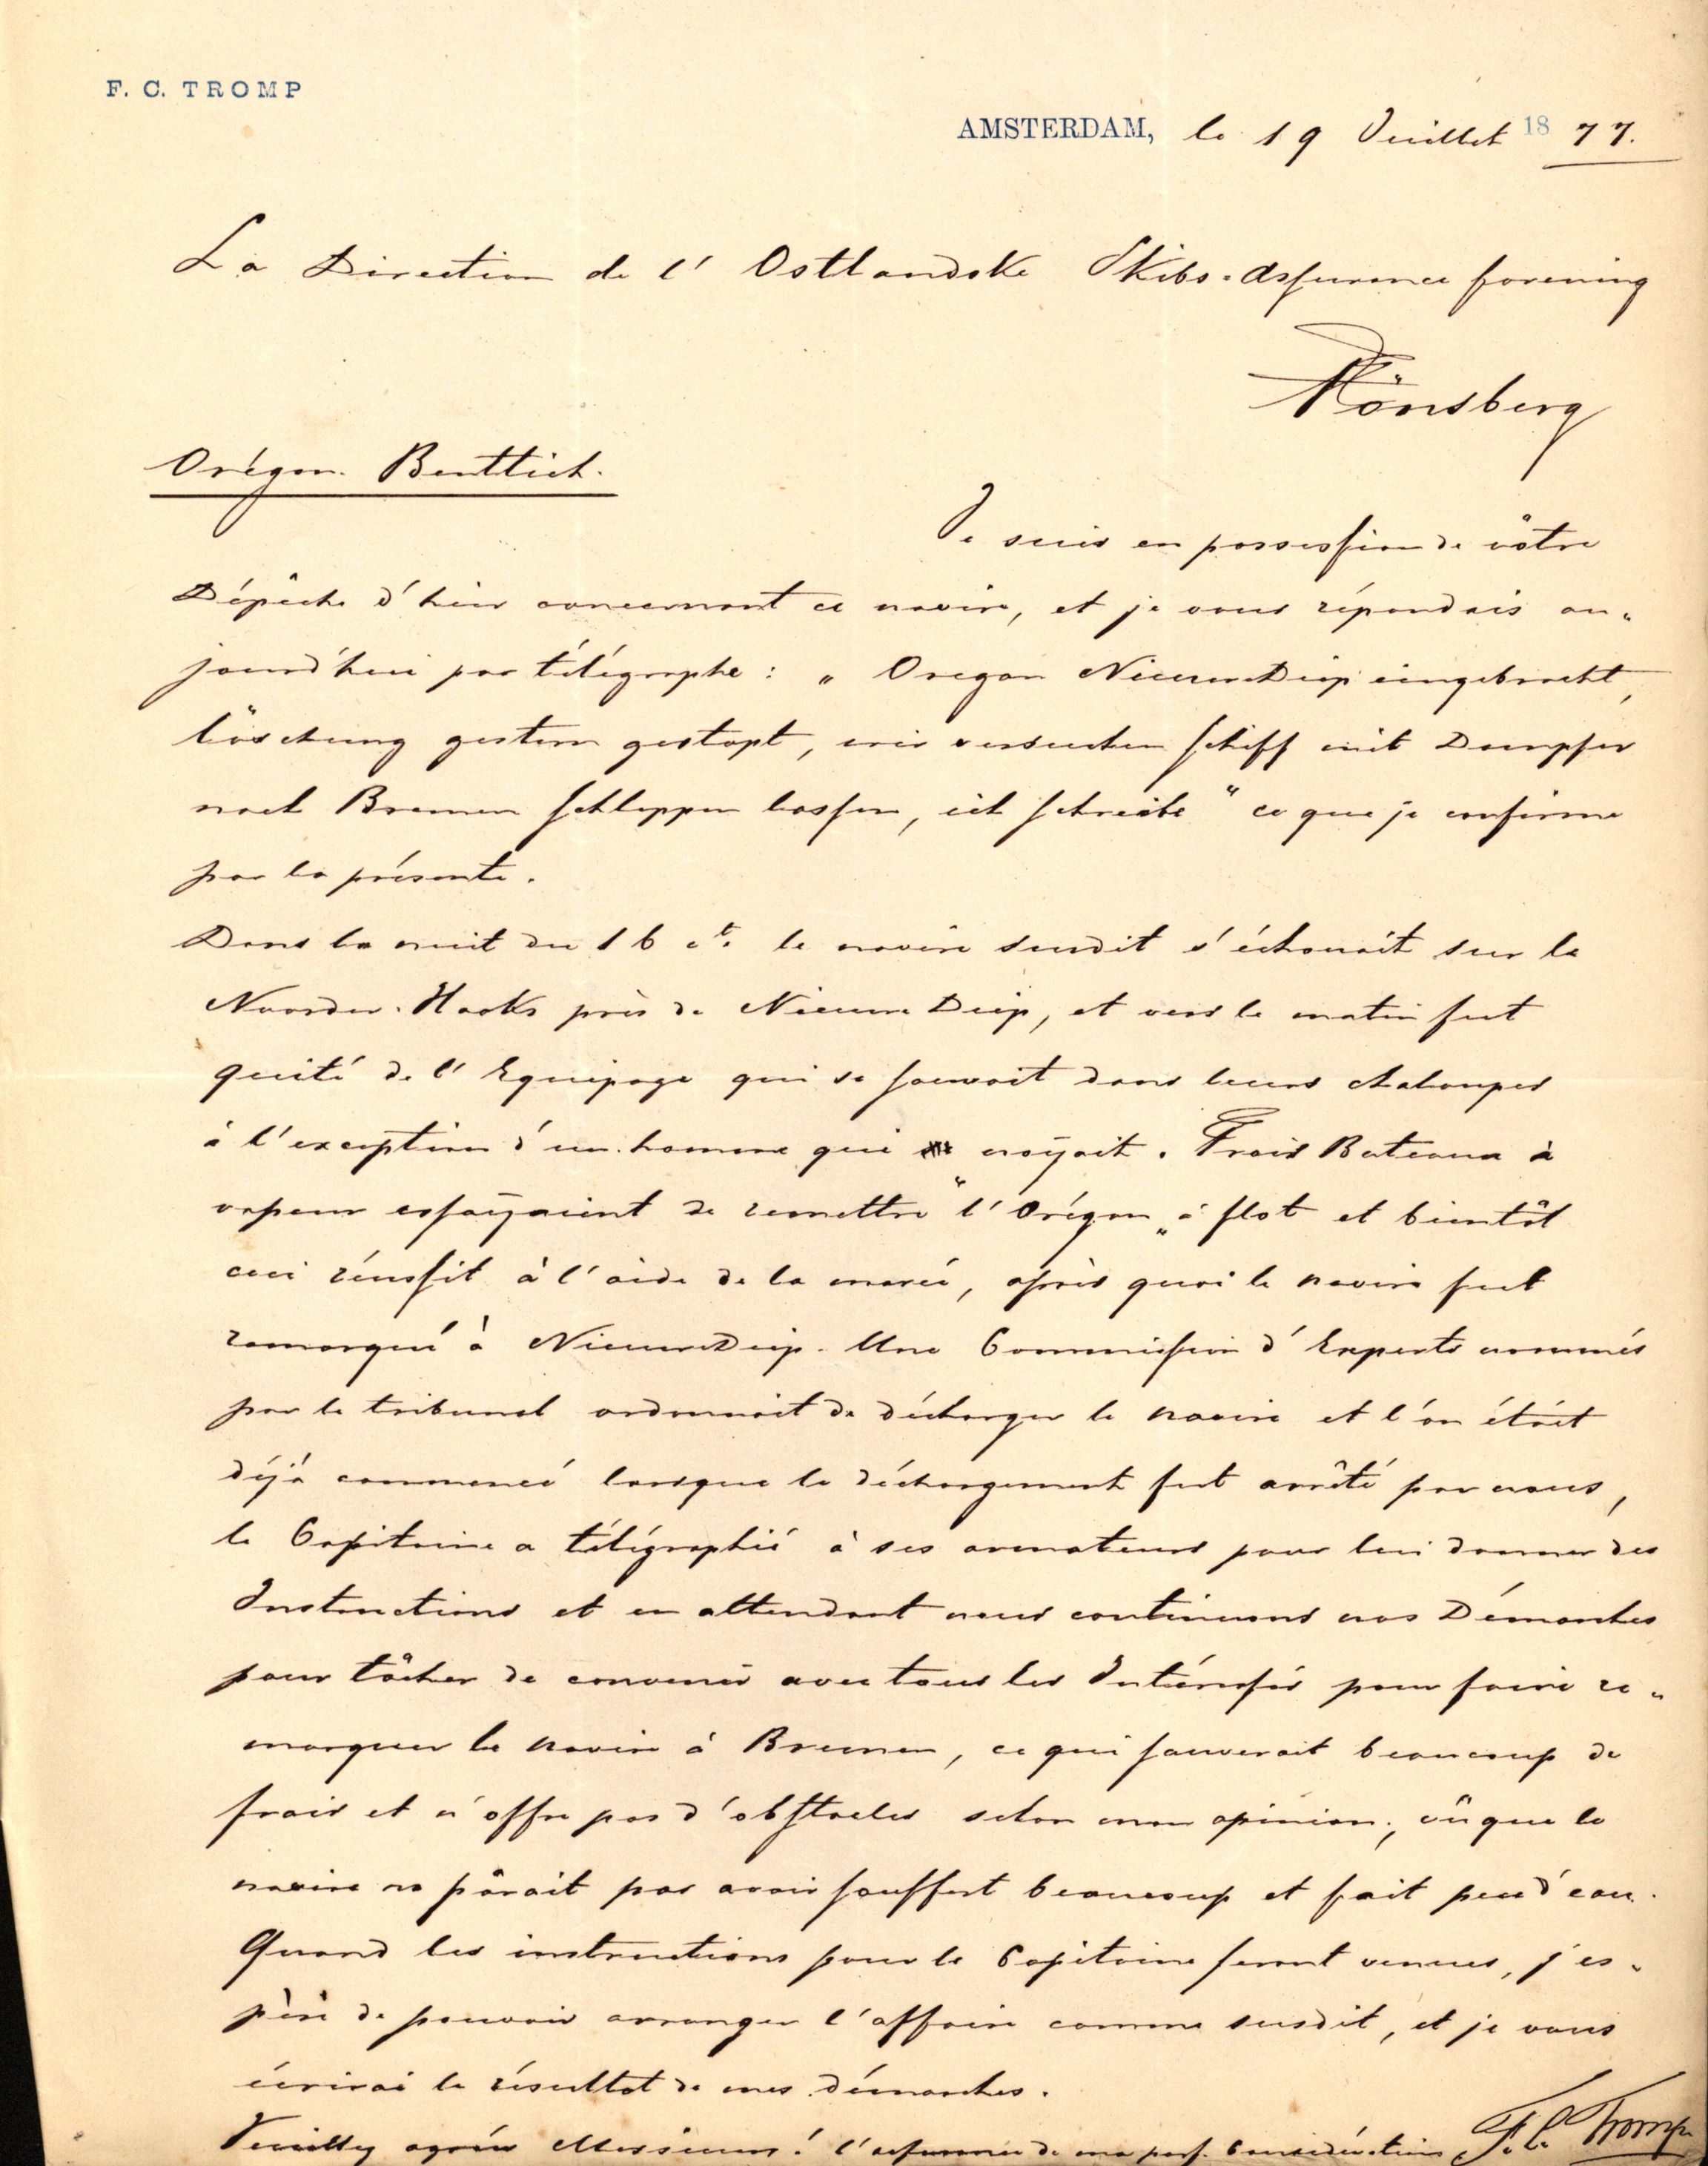 F. C. TROMP
AMSTERDAM, le 19 Juillet 1877.
La Direction de l' Ostlandske Skibs-Assurance forening
Tönsberg
Orégon. Benttich.
Je suis en possession de vôtre
Dépêche d'hier concernant ce navire, et je vous répondais au-
jourd'hui par télégraphe: „ Oregon Nieuwediep eingebracht,
löschung gestern gestopt, wir versuchen schiff mit Dampfer
nach Bremen schleppen lassen, ich schreibe " ce que je confirme
par la présente.
Dans la nuit du 16 ct. le navire susdit s'échouait sur le
Noorder-Haaks près de NieuweDiep, et vers le matin fut
quité de l' Equipage qui se sauvait dans leurs chaloupes
à l'exception d'un homme qui noyait. Trois Bateaux à
vapeur essayaient de remettre "l'Orégon„ à flot et bientôt
ceci réussit à l'aide de la marée, après quoi le navire fut
remorqué à NieuweDiep. Une Commission d'Experts nommés
par le tribunal ordonnait de décharger le navire et l'on était
déjà commencé lorsque le déchargement fut arrêté par nous,
le Capitaine a télégraphié à ses armateurs pour lui donner des
Instructions et en attendant nous continuons nos Démarches
pour tâcher de convenir avec tous les Intéressés pour faire re-
morquer le navire à Bremen, ce qui sauverait beaucoup de
frais et n'offre pas d'obstacles selon mon opinion, vû que le
navire ne pârait pas avoir souffert beaucoup et fait peu d'eau.
Quand les instructions pour le Capitaine seront venues, j'es-
père de pouvoir arranger l'affaire comme susdit, et je vous
écrirai le résultat de mes démarches.
Veuillez agréer Messieurs! l'assurance de ma parf. Considération F. C. Tromp